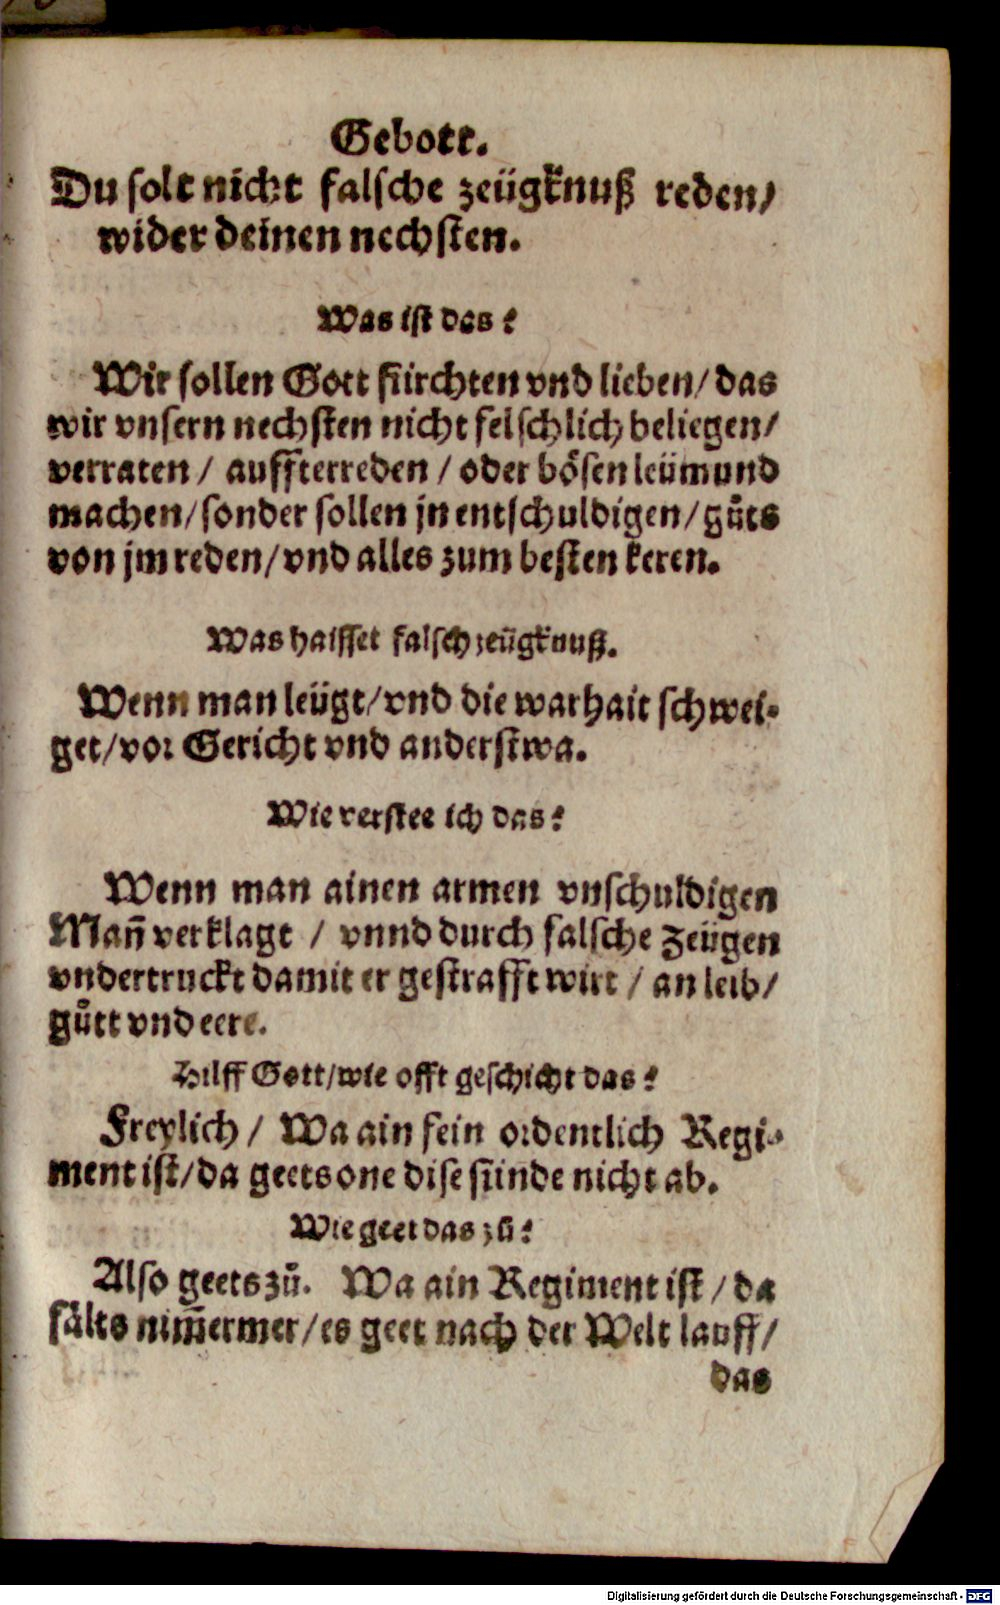 Gebott.
Du solt nicht falsche zeügknuß reden/
wider deinen nechsten.
Was ist das?
Wir sollen Gott fürchten vnd lieben/ das
wir vnsern nechsten nicht felschlich beliegen/
verraten / auffterreden / oder bösen leümund
machen/ sonder sollen jn entschuldigen/ gůts
von jm reden/ vnd alles zum besten keren.
Was haisset falsch zeügknuß.
Wenn man leügt/ vnd die warhait schwei-
get/ vor Gericht vnd anderstwa.
Wie verstee ich das?
Wenn man ainen armen vnschuldigen
Mañ verklagt / vnnd durch falsche Zeügen
vndertruckt damit er gestrafft wirt / an leib/
gůtt vnd eere.
Hilff Gott/ wie offt geschicht das?
Freylich / Wa ain fein ordentlich Regi-
ment ist/ da geets one dise sünde nicht ab.
Wie geet das zů?
Also geets zů. Wa ain Regiment ist / da
fälts nim̃ermer/ es geet nach der Welt lauff/
das
Digitalisierung gefördert durch die Deutsche Forschungsgemeinschaft - DFG